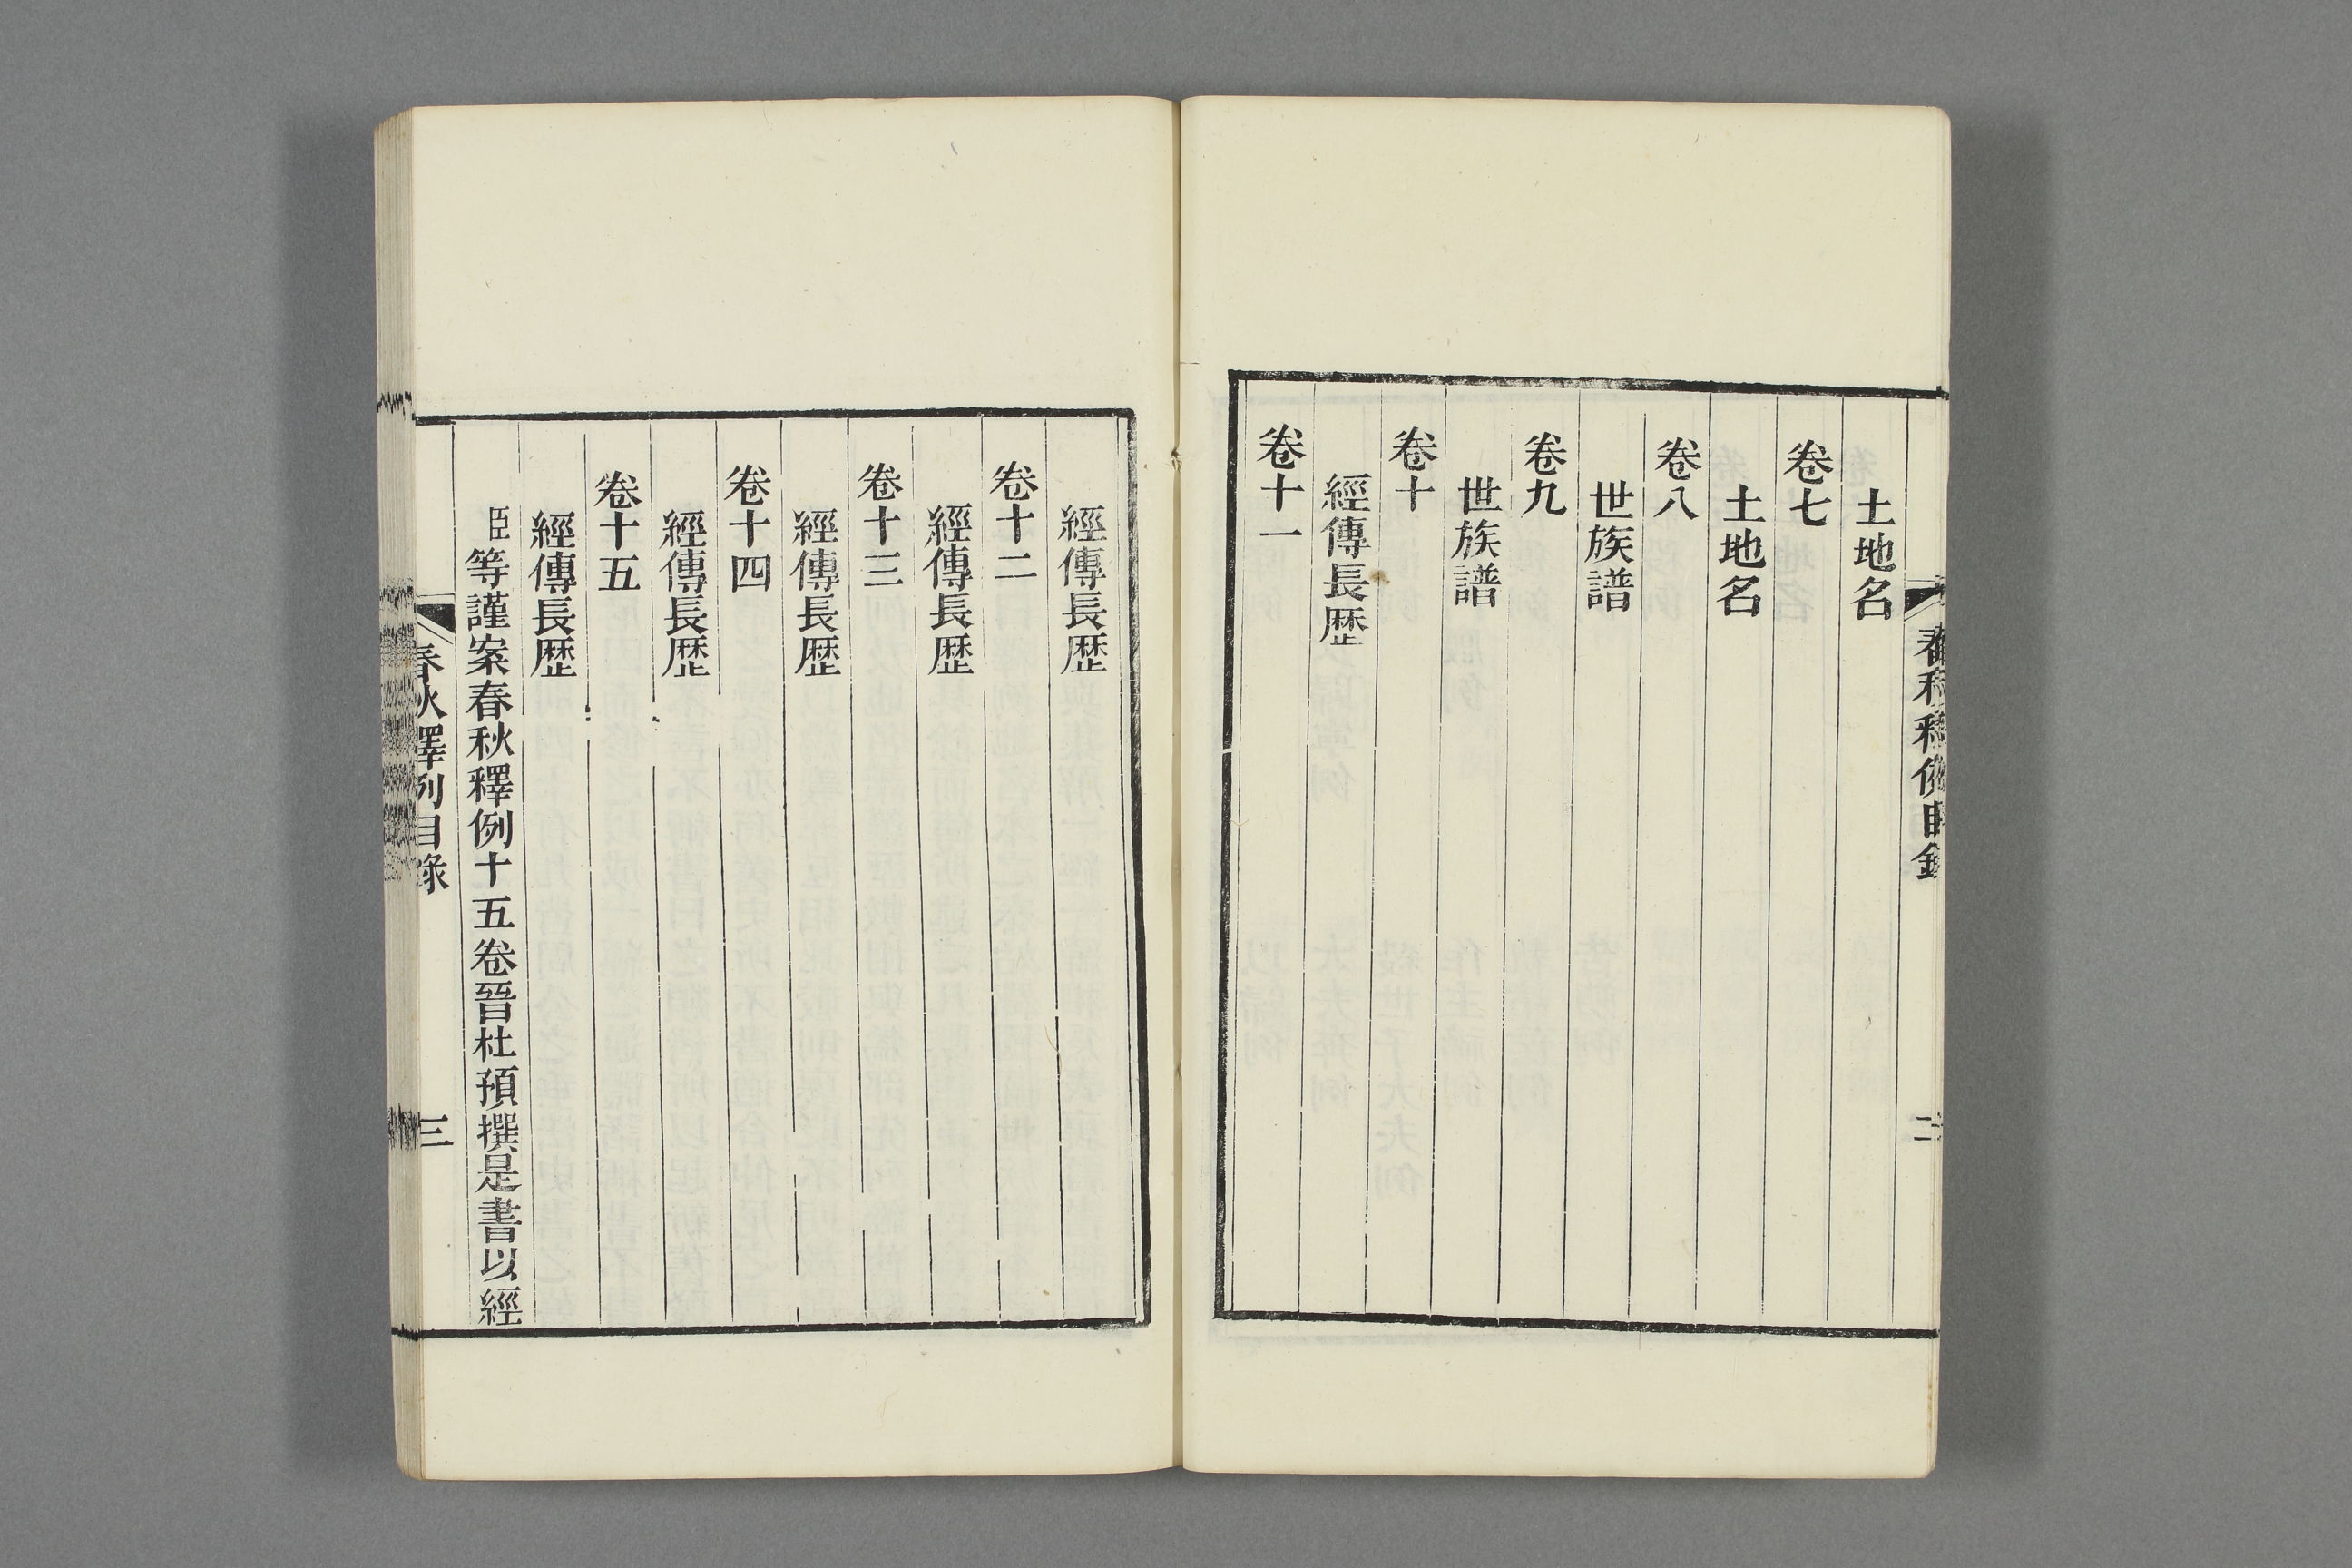 土地名
卷七
土地名
卷八
世族譜
卷九
世族譜
卷十
經傳長歴
卷十一
經傳長歴
卷十二
經傳長歴
卷十三
經傳長歴
卷十四
經傳長歴
卷十五
經傳長歴
臣等謹案春秋釋例十五卷晉杜預撰是書以經
春秋釋例目錄
三